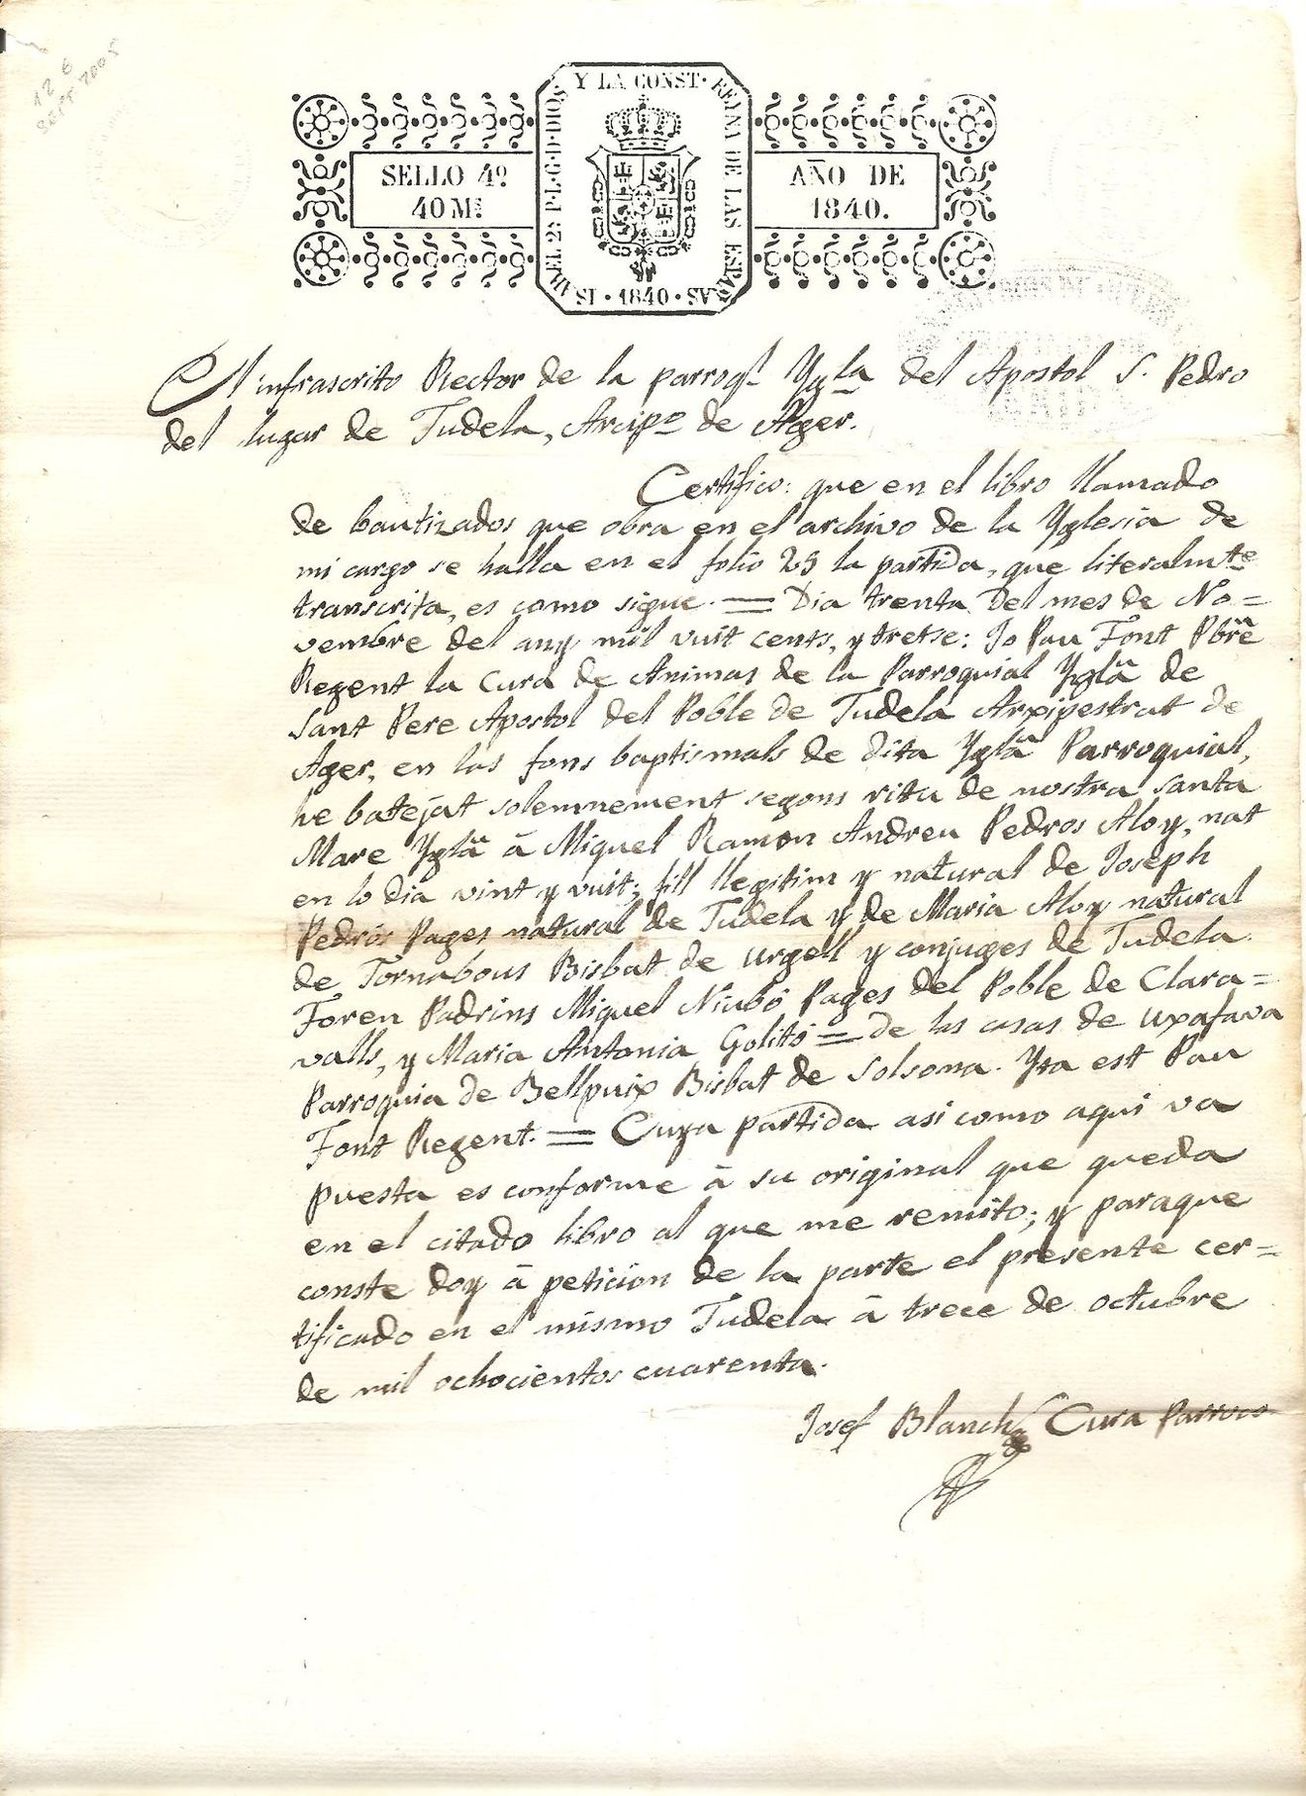 12 6
SEPT 2005
ISABEL 2ª P.L.G.D.DIOS Y LA CONST. REYNA DE LAS ESPAÑAS
SELLO 4º
40 Ms
AÑO DE
1840.
1840
El infrascrito Rector de la parroql Ygla del Apostol S. Pedro
del lugar de Tudela, Arcipo de Ager.
Certifico: que en el libro llamado
de bautizados que obra en el archivo de la Yglesia de
mi cargo se halla en el folio 25 la partida, que literalmte
transcrita, es como sigue. = Dia trenta del mes de No=
vembre del any mil vuit cents, y tretse: Jo Pau Font Pbre
Regent la Cura de Animas de la Parroquial Yglã de
Sant Pere Apostol del Poble de Tudela Arxipestrat de
Ager, en las fons baptismals de dita Yglã Parroquial,
he batejat solemnement segons ritu de nostra santa
Mare Yglã à Miquel Ramon Andreu Pedros Aloy, nat
en lo dia vint y vuit; fill llegitim y natural de Joseph
Pedrós Pages natural de Tudela y de Maria Aloy natural
de Tornabous Bisbat de Urgell y conjuges de Tudela.
Foren Padrins Miquel Niubó Pages del Poble de Clara=
valls, y Maria Antonia Golitó = de las casas de Uxafava
Parroquia de Bellpuix Bisbat de Solsona. Yta est Pau
Font Regent. = Cuya partida asi como aqui va
puesta es conforme à su original que queda
en el citado libro al que me remito; y paraque
conste doy à peticion de la parte el presente cer=
tificado en el mismo Tudela à trece de octubre
de mil ochocientos cuarenta.
Josef Blanch Cura Parroco